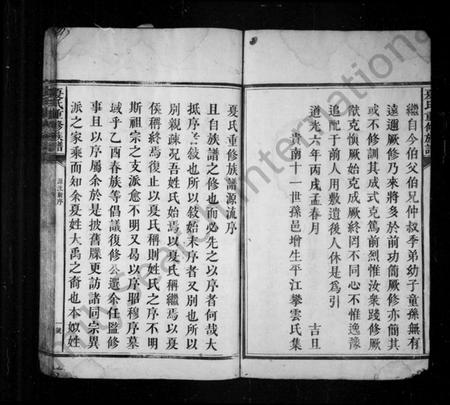 夏氏重修族譜
繼自今伯父伯兄仲叔季弟幼子童孫無有
遠邇厥修乃來將多於前功簡厥修亦簡其
或不修訓其成式克篤前烈惟汝衆踐修厥
猷克愼厥始克成厥終罔不同心不惟逸豫
追配于前人用敷遺後人休是爲引
道光六年丙戌孟春月 吉旦
貴南十一世孫邑增生平江攀雲氏集
夏氏重修族譜源流序
且自族譜之修也而必先之以序者何哉大
抵序之敍也所以敍始末序者又別也所以
別親疎况吾姓氏始焉以夏氏稱繼焉以夏
侯稱終焉復止以夏氏稱則姓氏之序不明
斯祖宗之支派愈不明又曷以序昭穆序墓
域乎乙酉春族等倡議復修公選余任監修
事且以序屬余於是披舊牒更訪諸同宗異
派之家乘而知余夏姓大禹之裔也本姒姓
夏氏重修族譜
源流新序
international